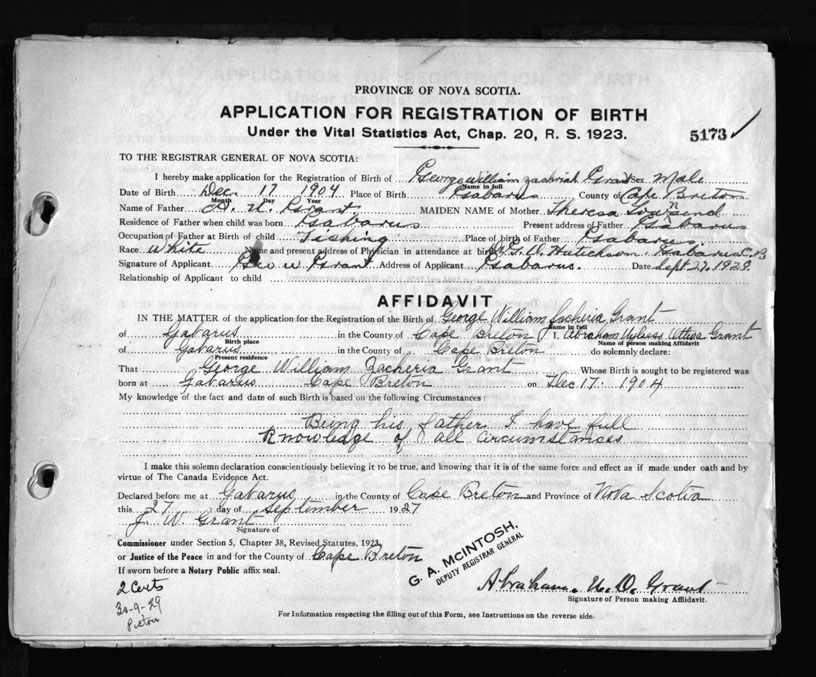 PROVINCE OF NOVA SCOTIA.
APPLICATION FOR REGISTRATION OF BIRTH
Under the Vital Statistics Act, Chap. 20, R. S. 1923.
5173
TO THE REGISTRAR GENERAL OF NOVA SCOTIA:
I hereby make application for the Registration of Birth of George William Zachriah Grant Sex Male
Name in full
Date of Birth Dec. 17 1904 Place of Birth Gabarus County of Cape Breton
Month Day Year
Name of Father Grant MAIDEN NAME of Mother Theresa
Residence of Father when child was born Gabarus Present address of Father Gabarus
Occupation of Father at Birth of child Fishing Place of birth of Father Gabarus.
Race White Name and present address of Physician in attendance at birth Hutchson. Gabarus C.B
Signature of Applicant Geo W. Grant Address of Applicant Gabarus. Date Sept 27, 1929.
Relationship of Applicant to child
AFFIDAVIT
IN THE MATTER of the application for the Registration of the Birth of George William Zacheria Grant
Name in full
of Gabarus in the County of Cape Breton I, Abraham Grant
Birth place
Name of person making Affidavit
of Gabarus in the County of Cape Breton do solemnly declare:
Present residence
That George William Zacheria Grant Whose Birth is sought to be registered was
born at Gabarus Cape Breton on Dec 17. 1904
My knowledge of the fact and date of such Birth is based on the following Circumstances:
Being his father I have full
Knowledge of all circumstances
I make this solemn declaration conscientiously believing it to be true, and knowing that it is of the same force and effect as if made under oath and by
virtue of The Canada Evidence Act.
Declared before me at Gabarus in the County of Cape Breton and Province of Nova Scotia
this 27 day of September 1927
J. W. Grant
Signature of
Commissioner under Section 5, Chapter 38, Revised Statutes, 1923
or Justice of the Peace in and for the County of Cape Breton
If sworn before a Notary Public affix seal.
G. A. McINTOSH,
DEPUTY REGISTRAR GENERAL
2 Certs
30-9-29
Pictou
Abraham. U. O. Grant
Signature of Person making Affidavit.
For Information respecting the filling out of this Form, see Instructions on the reverse side.